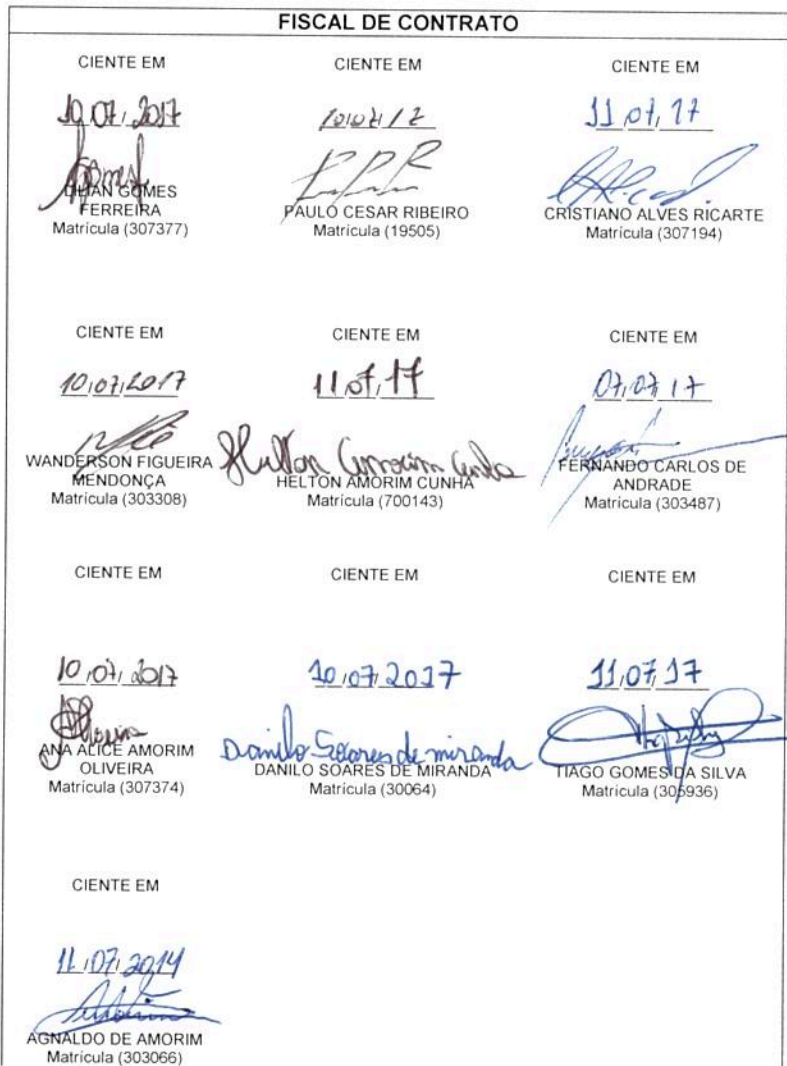 FISCAL DE CONTRATO
CIENTE EM
10/07/2017
GOMES
FERREIRA
Matrícula (307377)
CIENTE EM
10/07/17
PAULO CESAR RIBEIRO
Matrícula (19505)
CIENTE EM
11/07/17
CRISTIANO ALVES RICARTE
Matrícula (307194)
CIENTE EM
10/07/2017
WANDERSON FIGUEIRA
MENDONÇA
Matrícula (303308)
CIENTE EM
11/07/17
Helton Amorim Cunha
HELTON AMORIM CUNHA
Matrícula (700143)
CIENTE EM
07/07/17
FERNANDO CARLOS DE
ANDRADE
Matrícula (303487)
CIENTE EM
10/07/2017
ANA ALICE AMORIM
OLIVEIRA
Matrícula (307374)
CIENTE EM
10/07/2017
Danilo Soares de miranda
DANILO SOARES DE MIRANDA
Matrícula (30064)
CIENTE EM
11/07/17
TIAGO GOMES DA SILVA
Matrícula (305936)
CIENTE EM
11/07/2014
AGNALDO DE AMORIM
Matrícula (303066)